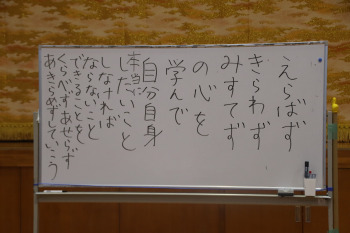 えらばず
きらわず
みすてず
の心を
学んで
自分自身
本当にしたいこと
しなければ
ならないこと
できることを
くらべずあせらず
あきらめずしていこう